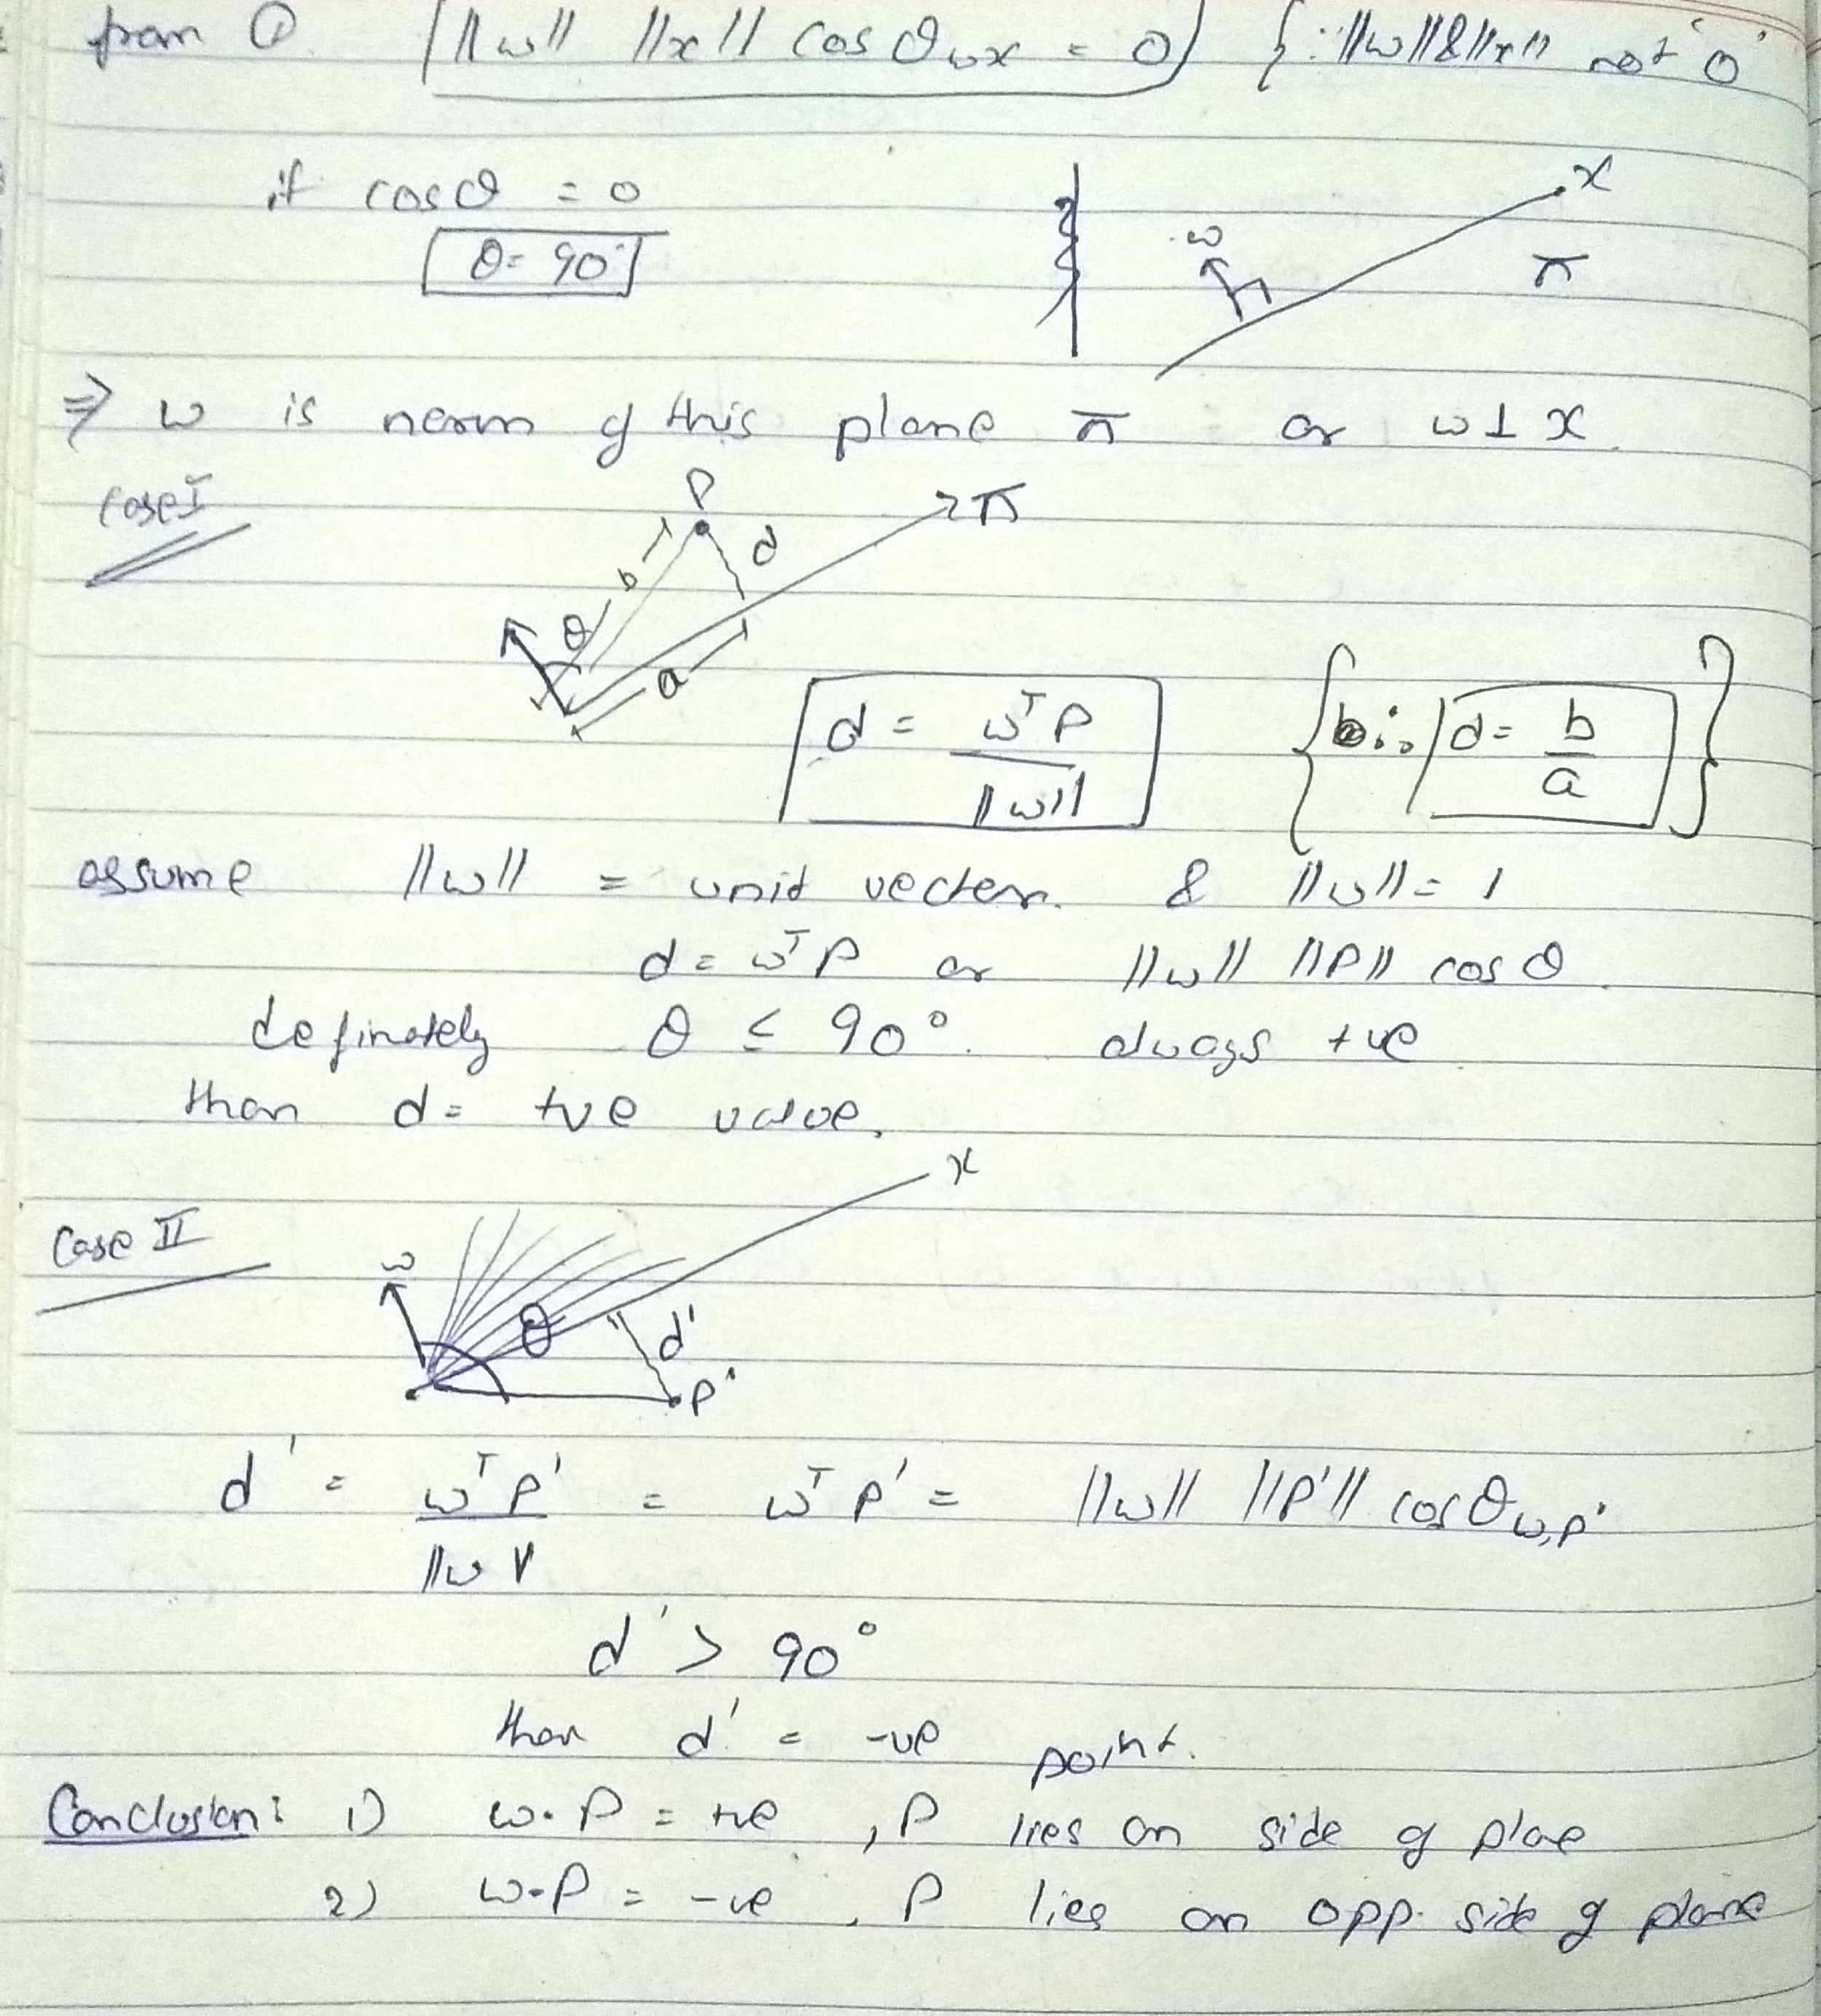 from ① ||w|| ||x|| cos θwx = 0 {∵ ||w|| & ||x|| not '0'
if cosθ = 0
θ = 90°
x
w
π
⇒ w is norm of this plane π or w ⊥ x
Case I
P
π
d
b
θ
a
d = wᵀP / ||w||
{ ∵ d = b / a }
assume ||w|| = unit vector. & ||w|| = 1
d = wᵀP or ||w|| ||P|| cos θ
definately θ ≤ 90°. always +ve
than d = +ve value.
x
Case II
w
θ
d'
P'
d' = wᵀP' / ||w|| = wᵀP' = ||w|| ||P'|| cos θw,P'
d' > 90°
than d' = -ve point.
Conclusion: 1) w·P = +ve, P lies on side of plae
2) w·P = -ve, P lies on opp. side of plane